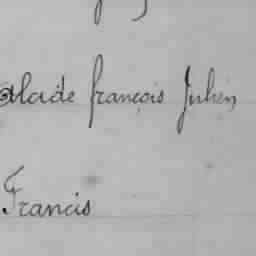 alade françois Julien
Francis